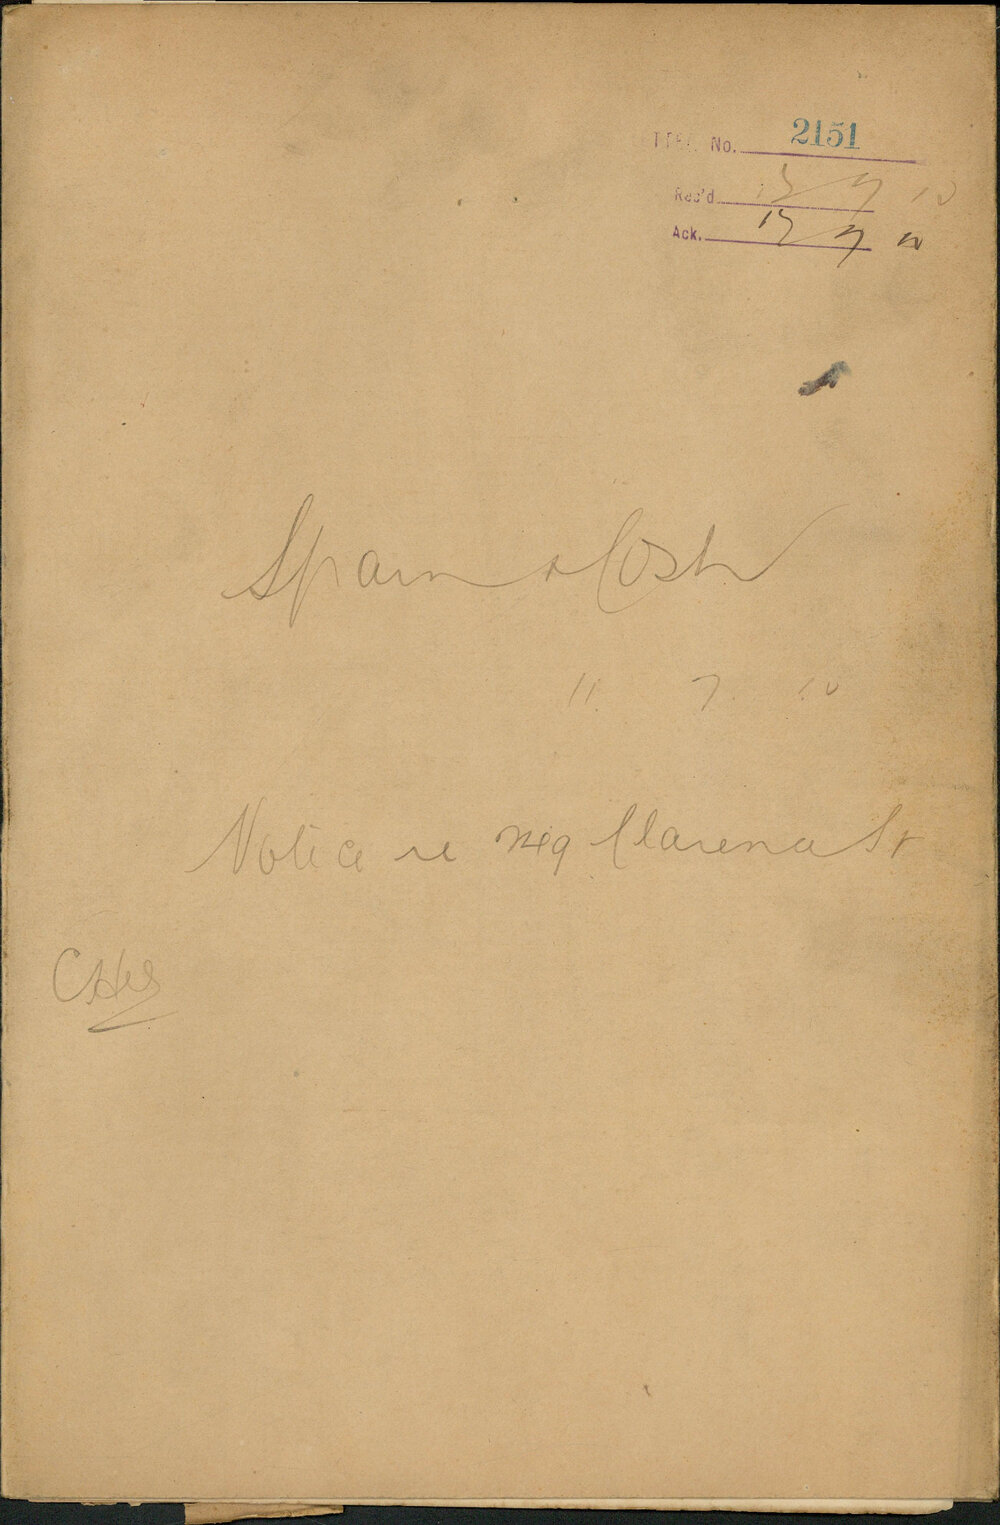 No. 2151
Rec'd 13 7 10
Ack. 13 7 10
Spain & Cosh
11. 7. 10
Notice re neg Clarence St